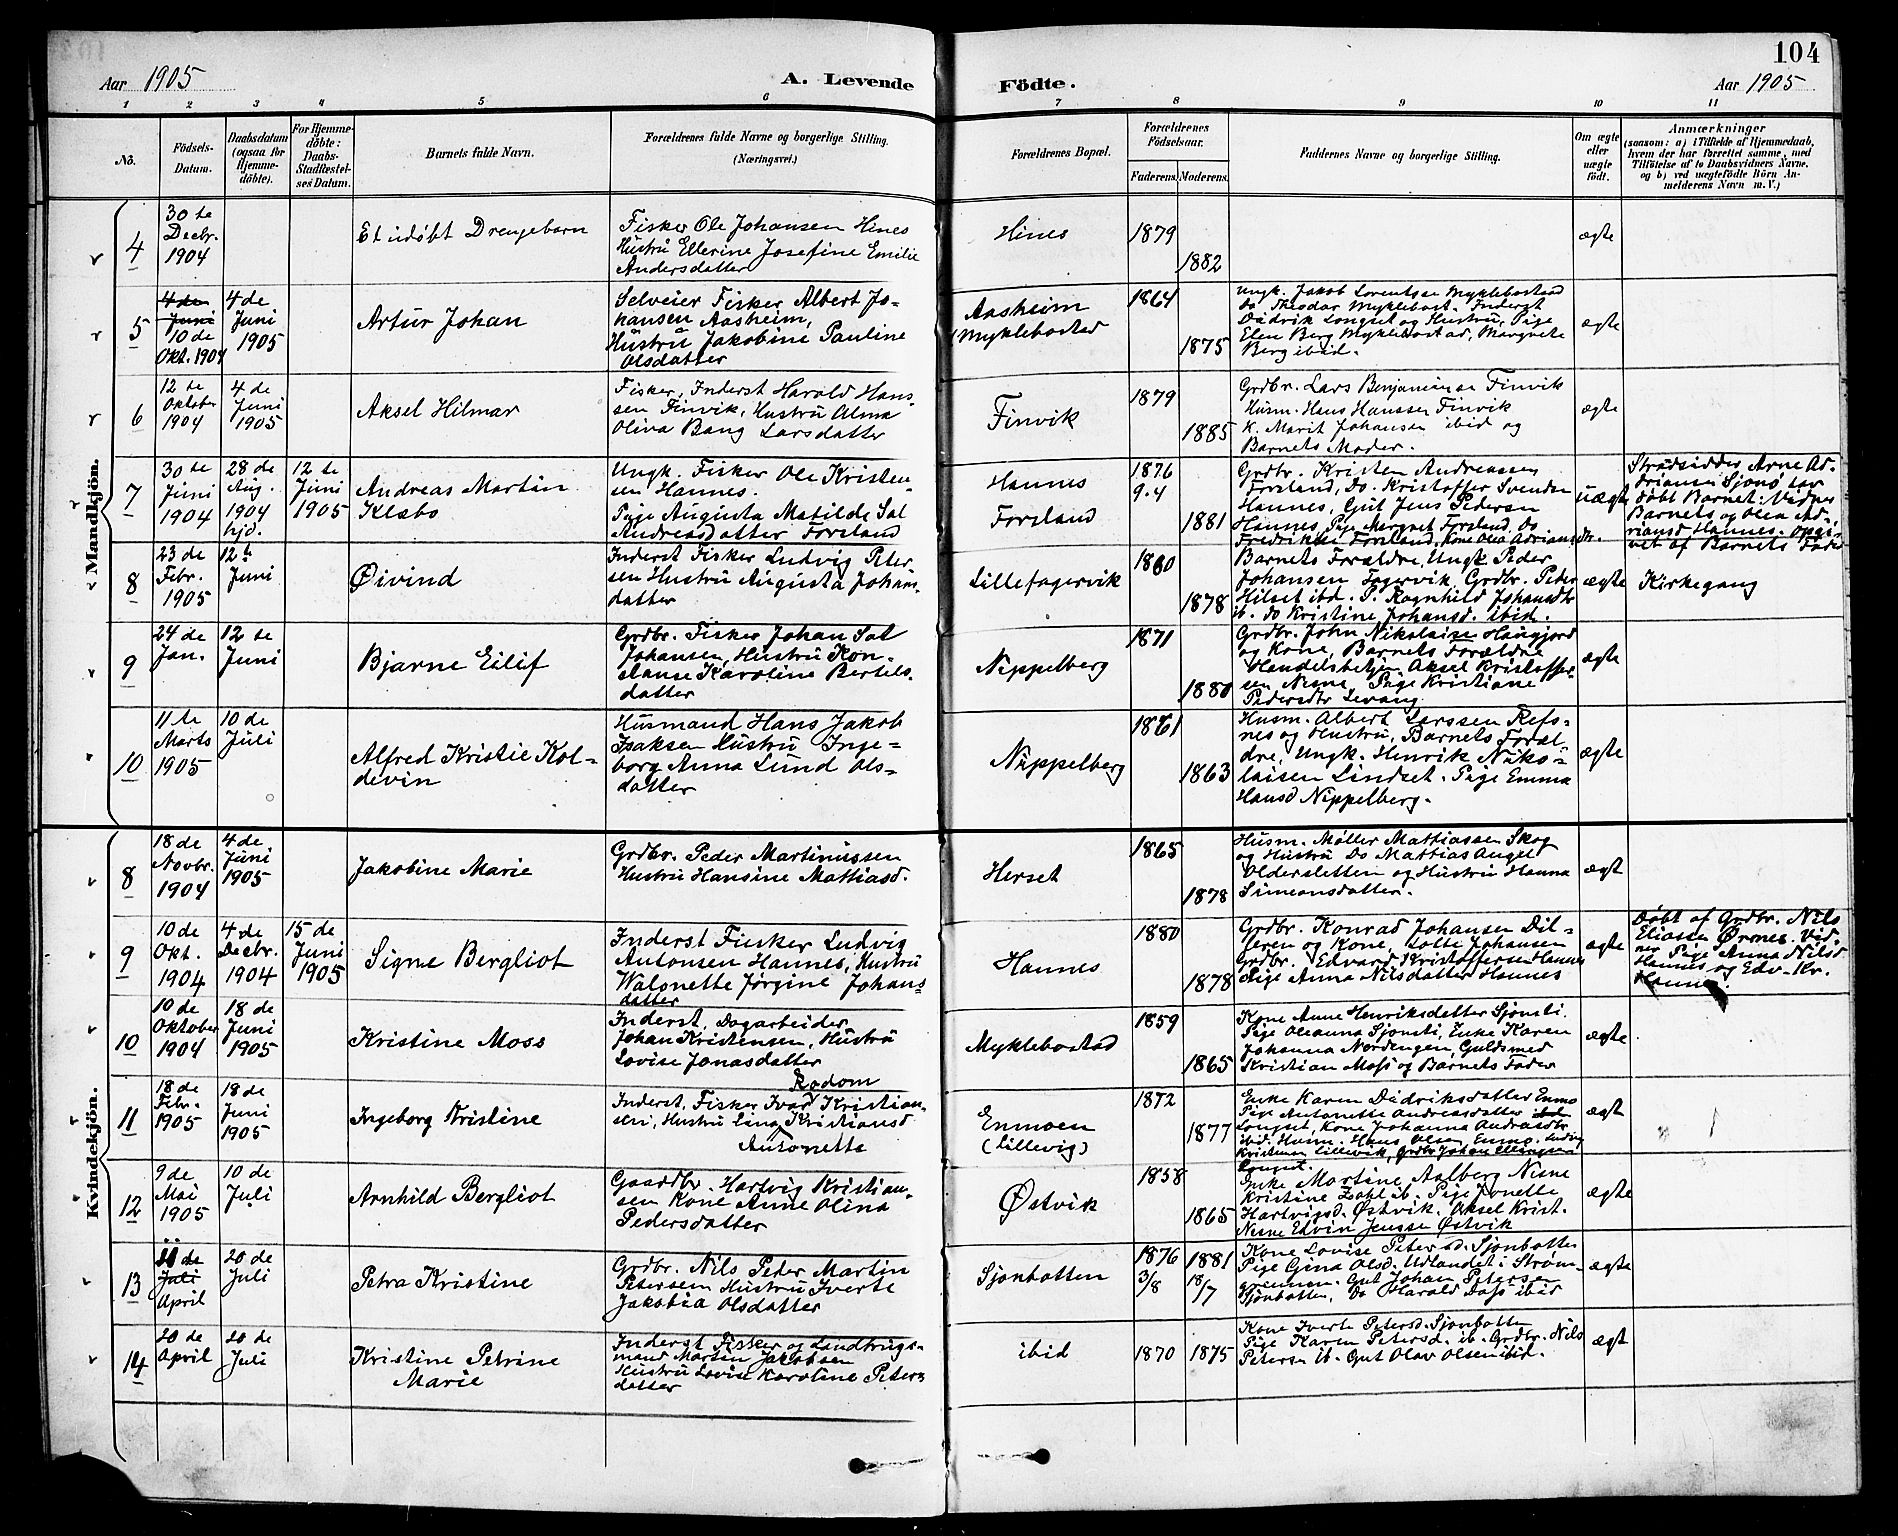 104
Aar 1905 A. Levende Födte. Aar 1905
1 2 3 4 5 6 7 8 9 10 11
No.
Födsels-
Datum.
Daabsdatum
(ogsaa for
Hjemme-
döbte).
For Hjemme-
döbte:
Daabs-
Stadfæstel-
ses Datum.
Barnets fulde Navn.
Forældrenes fulde Navne og borgerlige Stilling.
(Næringsvei.)
Forældrenes Bopæl.
Forældrenes
Födselsaar.
Faderens. Moderens.
Faddernes Navne og borgerlige Stilling.
Om ægte
eller
uægte
födt.
Anmærkninger
(saasom: a) i Tilfælde af Hjemmedaab,
hvem der har forrettet samme, med
Tilföielse af to Daabsvidners Navne,
og b) ved uægtefödte Börn An-
melderens Navn m. V.)
Mandkjön.
4
30 te
Decbr.
1904
Et udøbt Drengebarn
Fisker Ole Johansen Hines
Hustru Ellerine Josefine Emilie
Andersdatter
Hines
1879
1882
ægte
5
4 de
Juni
10 de
Okt. 1904
4 de
Juni
1905
Artur Johan
Selveier Fisker Albert Jo-
hansen Aasheim,
Hustru Jakobine Pauline
Olsdatter
Aasheim
Myklebostad
1864
1875
Ungk. Jakob Lorentsen Myklebostad
Do Theodor Myklebost. Inderst
Didrik Longset og Hustru, Pige
Elen Berg Myklebostad, Margrete
Berg ibid.
ægte
6
12 te
Oktober
1904
4 de
Juni
1905
Aksel Hilmar
Fisker, Inderst Harald Hans-
sen Finvik, Hustru Alma
Oliva Bang Larsdatter
Finvik
1879
1885
Grdbr. Lars Benjaminse Finvik
Husm. Hans Hanssen Finvik
K. Marit Johansen ibid og
Barnets Moder.
ægte
7
30 te
Juni
1904
28 de
Aug.
1904
hjd.
12 te
Juni
1905
Andreas Martin
Klæbo
Ungk. Fisker Ole Kristen-
sen Hannes.
Pige Augusta Matilde Sal
Andreasdatter Forsland
Hannes
Forsland
1876
9-4
1881
Grdbr. Kristen Andreassen
Forsland, Do. Kristoffer Svendsen
Hannes, Gut Jens Pedersen
Hannes, Pige Margret Forsland Do
Fredrikke Forsland, Kone Olea Adriansdtr.
uægte
Strandsidder Arne Ad-
riansen Sjonø har
døbt Barnet. Vidner
Barnets og Olea Ad-
riansd Hannes. Opgi-
vet af Barnets Fader
8
23 de
Febr.
1905
12 te
Juni
Øivind
Inderst Fisker Ludvig Peter-
sen Hustru Augusta Johans-
datter
Lillefagervik
1880
1878
Barnets Forældre, Ungk Peder
Johansen Fagervik, Grdbr. Peter
Hilset ibd. P. Ragnhild Johansdtr
ib. do Kristine Johansd. ibid.
ægte
Kirkegang
9
24 de
Jan.
12 te
Juni
Bjarne Eilif
Grdbr. Fisker Johan Sal
Johansen, Hustru Kon-
stanse Karoline Bertels-
datter
Nippelberg
1871
1880
Grdbr. John Nikolaisen Haugjord
og Kone, Barnets Forældre
Handelsbetjen Aksel Kristoffer-
sen Nesne, Pige Kristiane
Pedersdtr Levang
ægte
10
11 te
Marts
1905
10 de
Juli
Alfred Kristie Kol-
devin
Husmand Hans Jakob
Isaksen Hustru Inge-
borg Anna Lund Ols-
datter
Nippelberg
1861
1863
Husm. Albert Larssen Refs-
nes og Hustru, Barnets Foræl-
dre, Ungk. Henrik Niko-
laisen Lindset. Pige Emma
Hansd Nippelberg.
ægte
Kvindekjön.
8
18 de
Novbr.
1904
4 de
Juni
1905
Jakobine Marie
Grdbr. Peder Martinussen
Hustru Hansine Mattiasd.
Herset
1865
1878
Husm. Møller Mattiassen Skog
og Hustru Do Mattias Angel
Oldersletten og Hustru Hanna
Simeonsdatter.
ægt
9
10 de
Okt.
1904
4 de
Decbr.
1904
15 de
Juni
1905
Signe Bergliot
Inderst Fisker Ludvig
Antonsen Hannes, Hustru
Walonette Jørgine Johans-
datter
Hannes
1880
1878
Grdbr. Konrad Johansen Dil-
geren og Kone, Lotte Johansen
Grdbr. Edvard Kristoffersen Hannes
Pige Anna Nilsdatter Hannes
ægte
Døbt af Grdbr. Nils
Eliassen Ørnes. Vid-
ner Pige Anna Nilsd
Hannes og Edv. Kr.
Hannes.
10
10 de
Oktober
1904
18 de
Juni
1905
Kristine Moss
Inderst, Dagarbeider
Johan Kristensen, Hustru
Lovise Jonasdatter
Myklebostad
1859
1865
Kone Anne Henriksdatter Sjonsti.
Pige Oleanna Sjonsti, Enke Karen
Johanna Nordengen, Guldsmed
Kristian Moss og Barnets Fader
ægte
11
18 de
Febr.
1905
18 de
Juni
1905
Ingeborg Kristine
Rødom
Inderst, Fisker Ivar Kristian-
sen, Hustru Lina Kristiansd
Antonette
Enmoen
(Lillevig)
1872
1877
Enke Karen Didriksdatter Enmo
Pige Antonette Andreasdatter ibid
Longset, Kone Johanna Andrasdtr
ibid. Husm. Hans Olsen, Enmo. Ludvig
Kristensen Lillevik, Grdbr Johan Ellingsen
Longset.
ægt
12
9 de
Mai
1905
10 de
Juli
Arnhild Bergliot
Gaardbr. Hartvig Kristian-
sen Kone Anne Olina
Pedersdatter
Østvik
1858
1865
Enke Martine Aalberg Nesne
Kristine Zahl ib. Pige Jonette
Hartvigsd. Østvik. Aksel Krist.
Nesne Edvin Jensse Østvik
ægte
13
20 de
Juli
April
20 de
Juli
Petra Kristine
Grdbr. Nils Peder Martin
Petersen Hustru Iverte
Jakobia Olsdatter
Sjonbotten
1876
3/8
1881
18/7
Kone Lovise Petersd. Sjonbotten
Pige Gina Olsd. Udlandet i Strøm-
grennen. Gut Johan Petersen
Sjonbotten, Do Harald Dass ibid
ægte
14
20 de
April
20 de
Juli
Kristine Petrine
Marie
Inderst Fisker og Landbrugs-
mand Martin Jakobsen
Hustru Lovise Karoline Peters-
datter
ibid
1870
1875
Kone Iverte Petersd. Sjonbotten
Pige Karen Petersd. ib. Grdbr. Nils
Petersen ib. Gut Olav Olsen ibid.
ægt